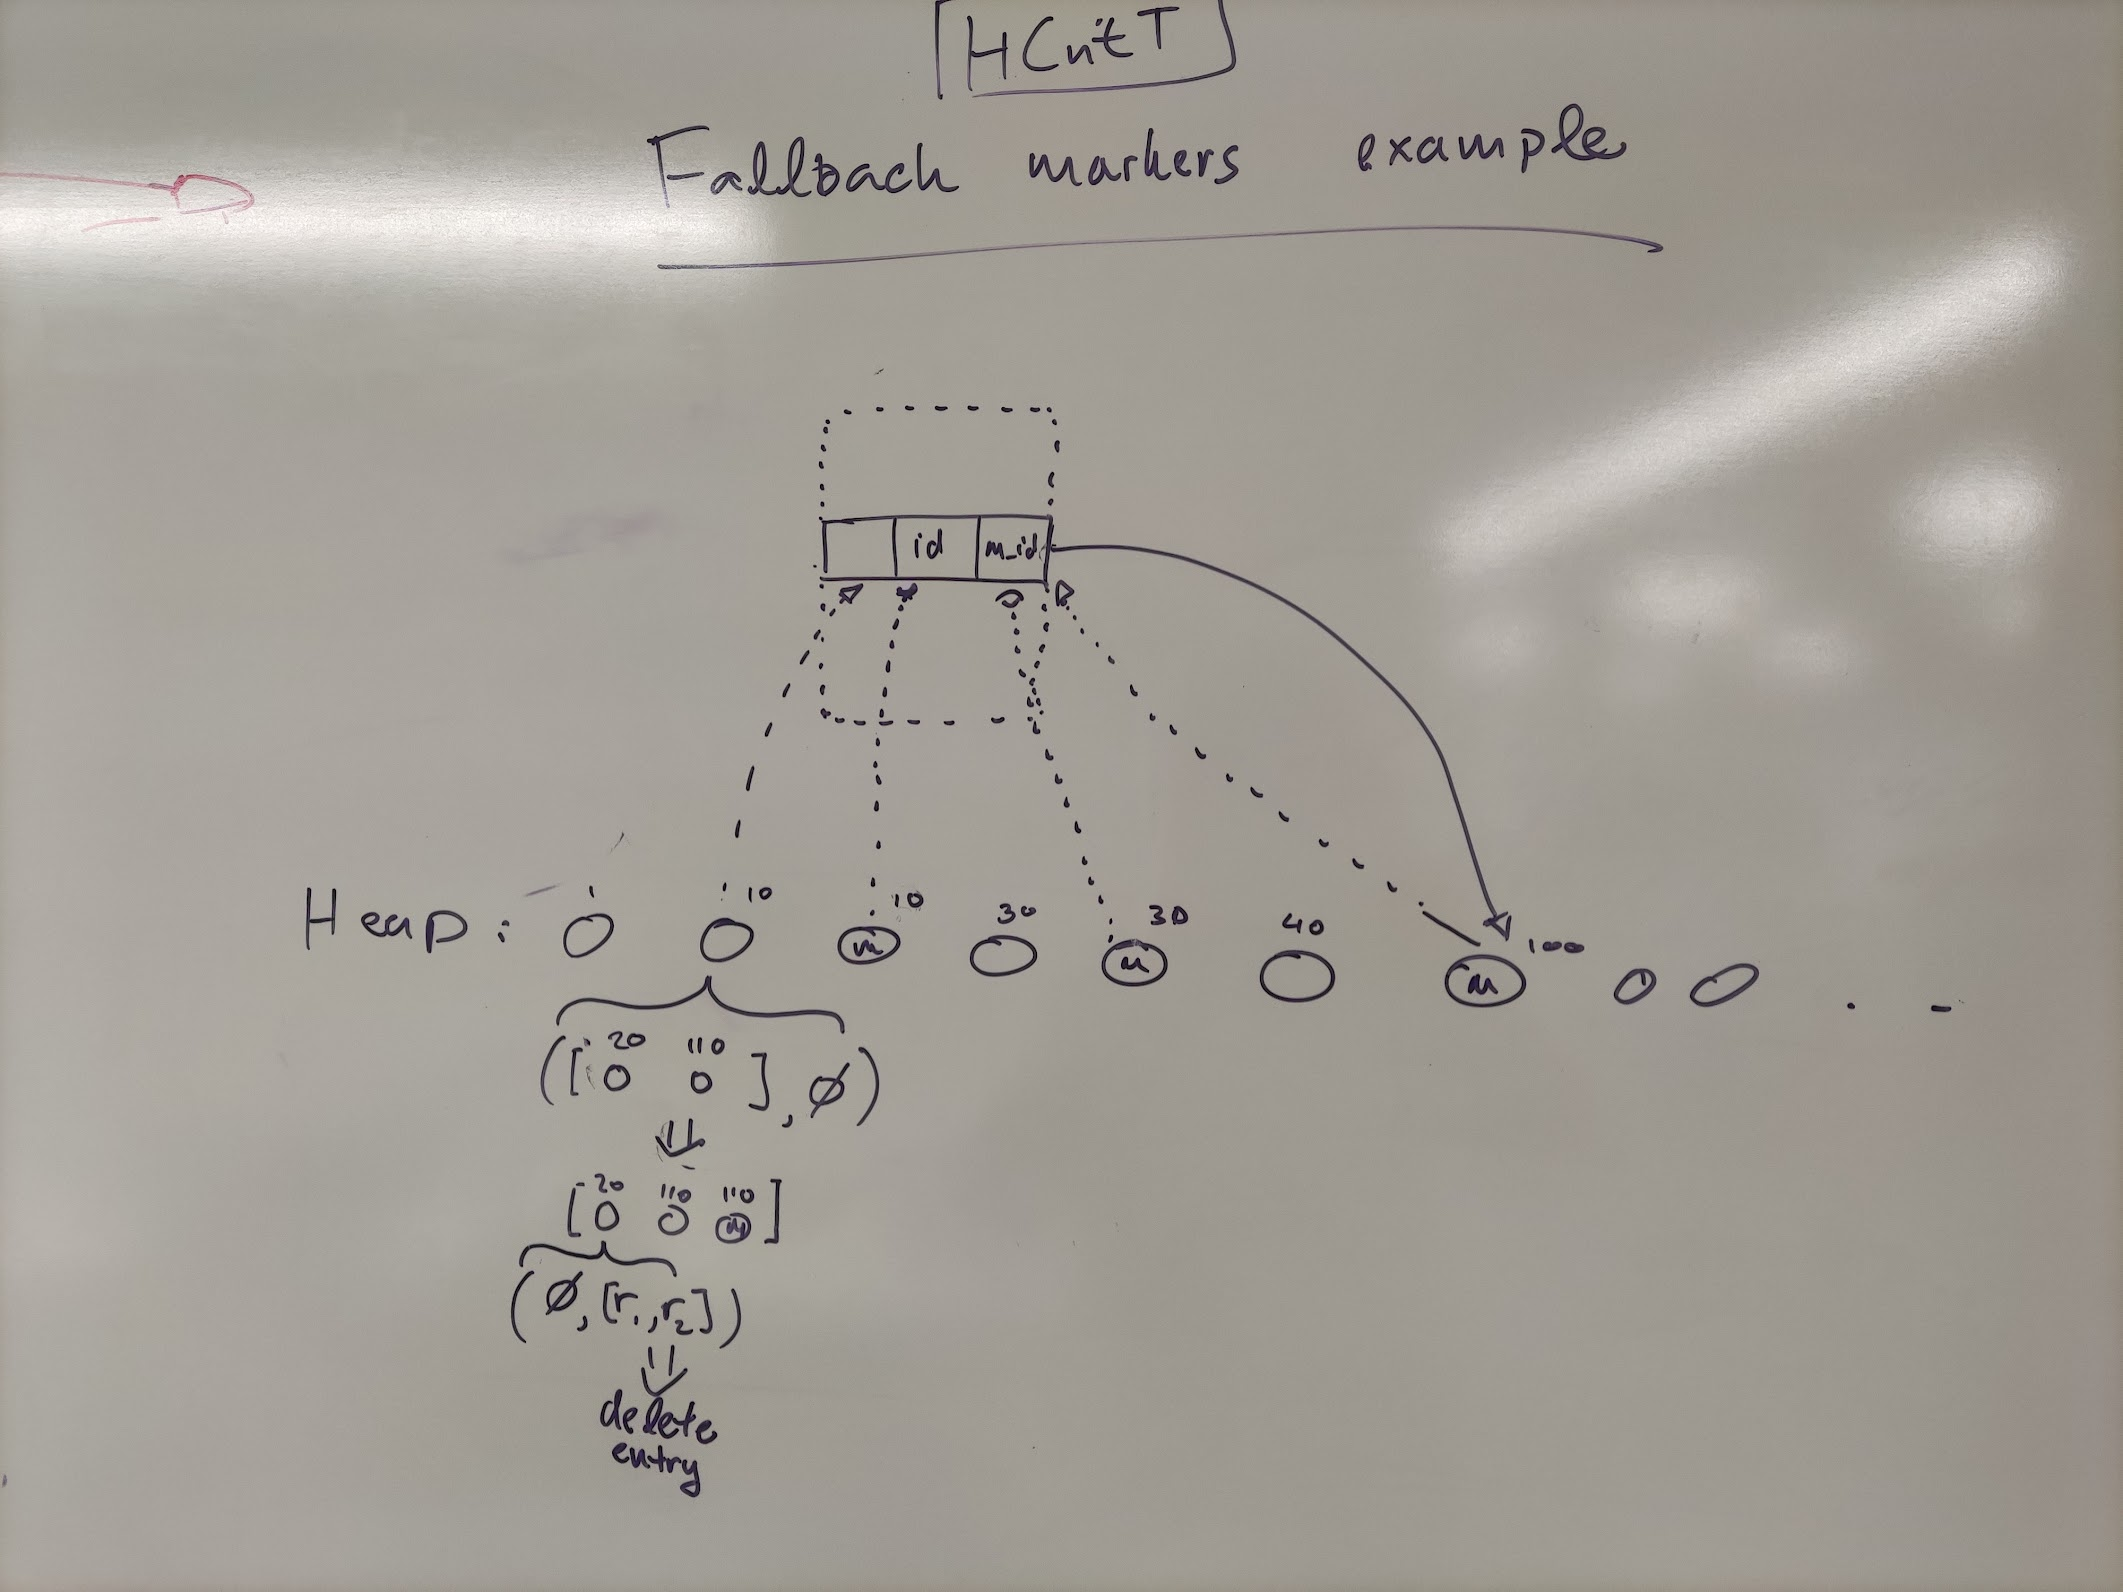 HCntT
Fallback markers example
id m_id
10 10 30 30 40 100
Heap: m m m . -
20 110
([ o o ], ∅)
⇓
20 110 110
[ o o m ]
(∅, [r₁, r₂])
⇓
delete
entry